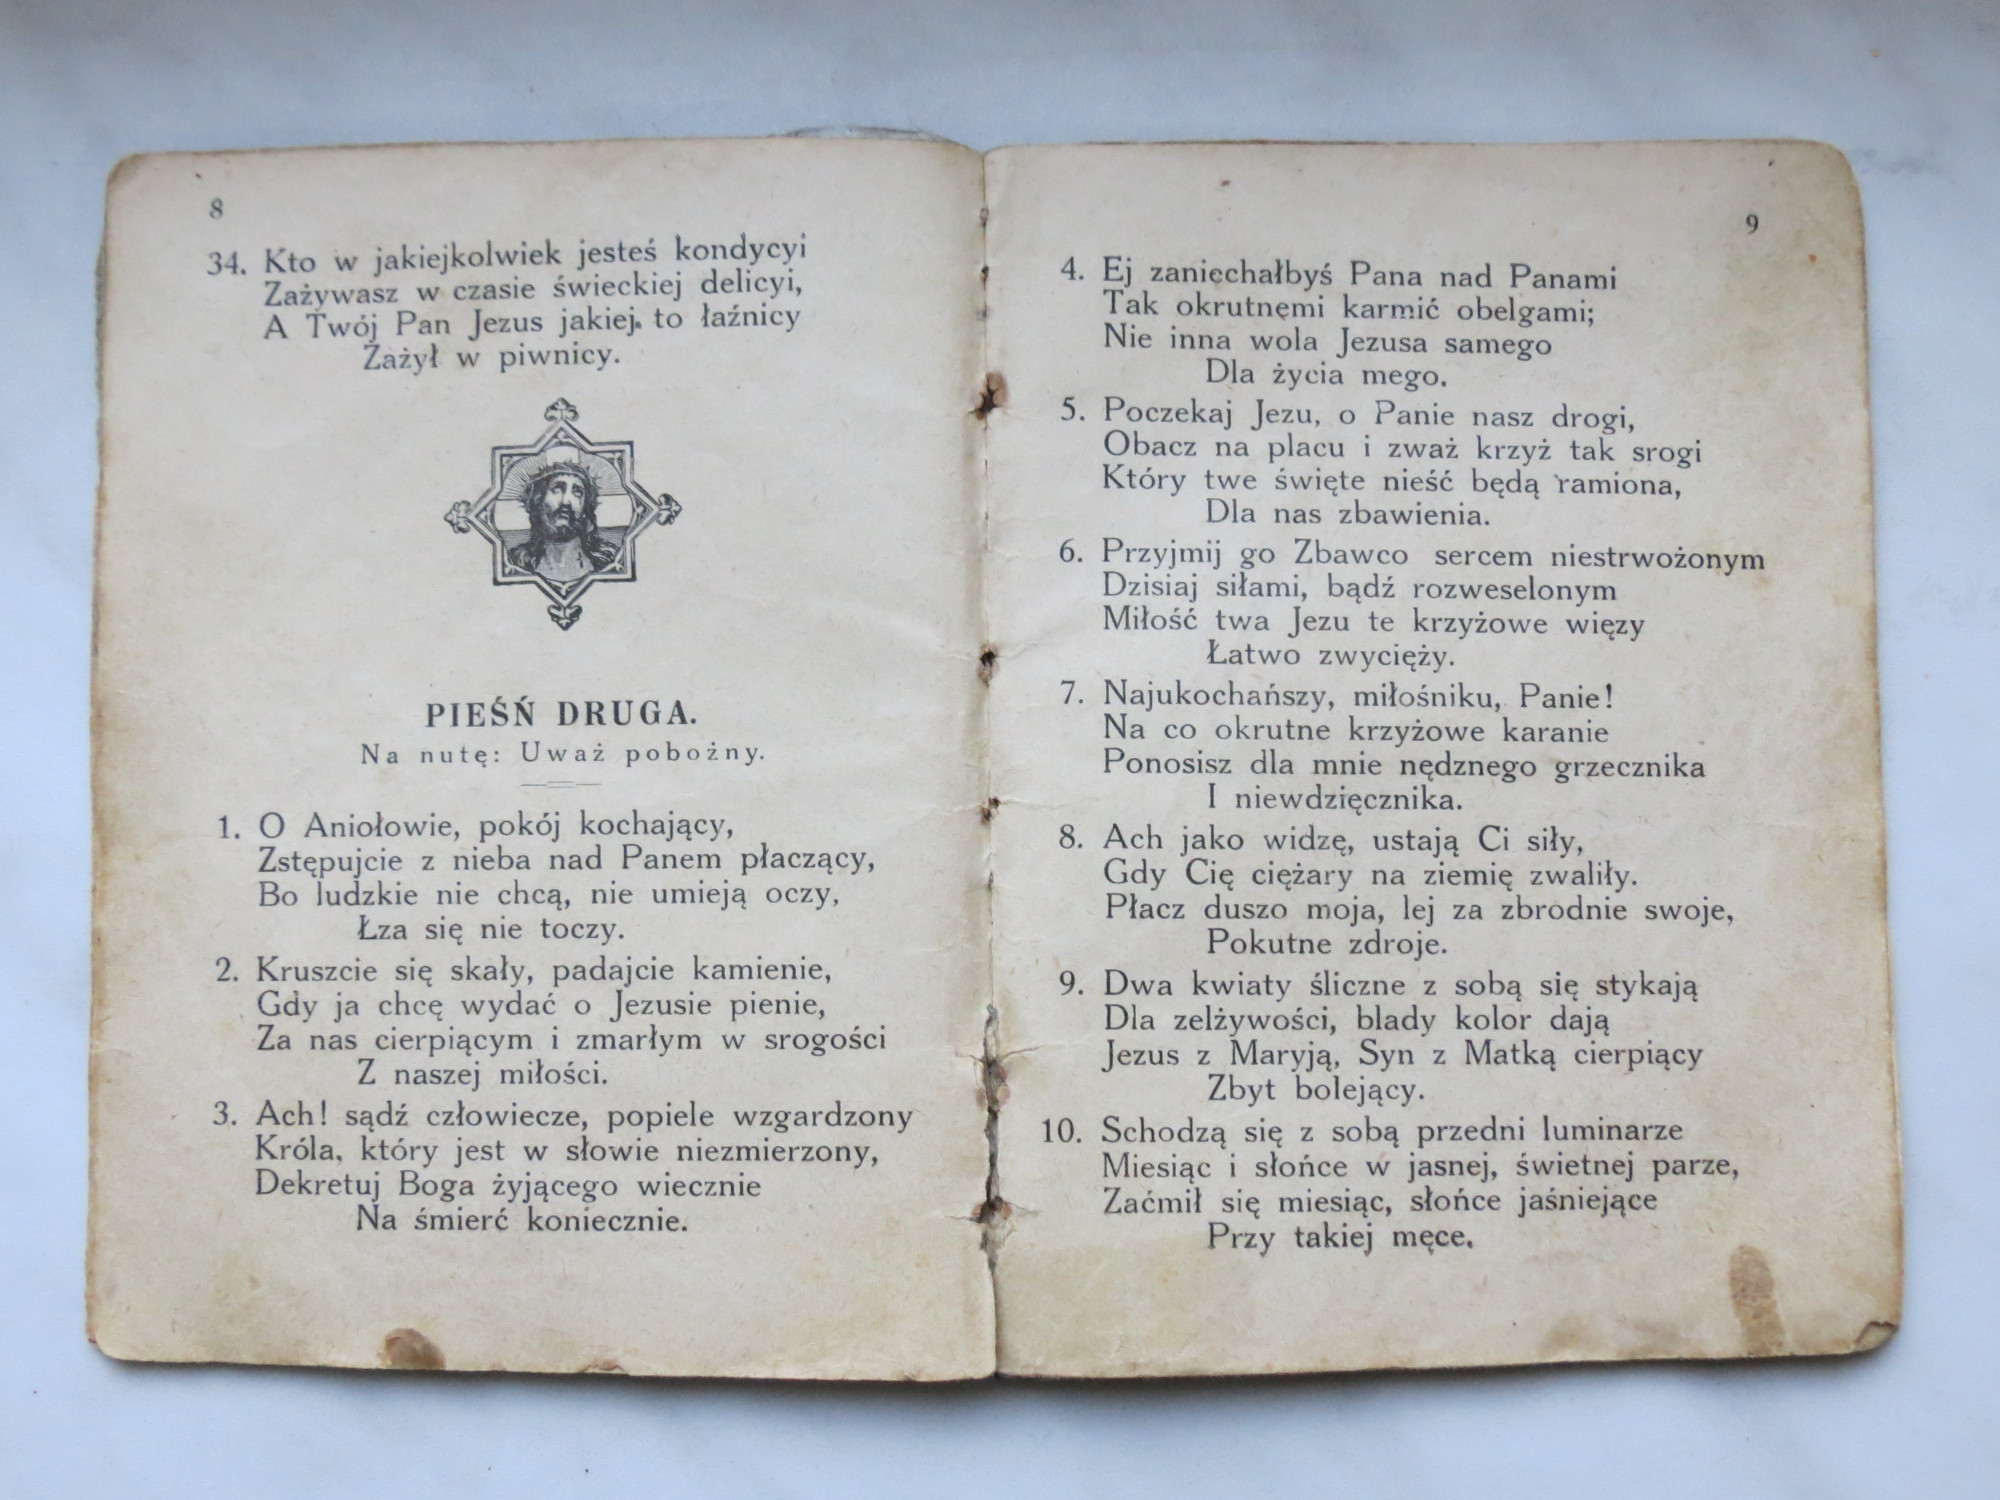 8
34. Kto w jakiejkolwiek jesteś kondycyi
Zażywasz w czasie świeckiej delicyi,
A Twój Pan Jezus jakiej. to łaźnicy
Zażył w piwnicy.
PIEŚŃ DRUGA.
Na nutę: Uważ pobożny.
1. O Aniołowie, pokój kochający,
Zstępujcie z nieba nad Panem płaczący,
Bo ludzkie nie chcą, nie umieją oczy,
Łza się nie toczy.
2. Kruszcie się skały, padajcie kamienie,
Gdy ja chcę wydać o Jezusie pienie,
Za nas cierpiącym i zmarłym w srogości
Z naszej miłości.
3. Ach! sądź człowiecze, popiele wzgardzony
Króla, który jest w słowie niezmierzony,
Dekretuj Boga żyjącego wiecznie
Na śmierć koniecznie.
9
4. Ej zaniechałbyś Pana nad Panami
Tak okrutnemi karmić obelgami;
Nie inna wola Jezusa samego
Dla życia mego.
5. Poczekaj Jezu, o Panie nasz drogi,
Obacz na placu i zważ krzyż tak srogi
Który twe święte nieść będą ramiona,
Dla nas zbawienia.
6. Przyjmij go Zbawco sercem niestrwożonym
Dzisiaj siłami, bądź rozweselonym
Miłość twa Jezu te krzyżowe więzy
Łatwo zwycięży.
7. Najukochańszy, miłośniku, Panie!
Na co okrutne krzyżowe karanie
Ponosisz dla mnie nędznego grzecznika
I niewdzięcznika.
8. Ach jako widzę, ustają Ci siły,
Gdy Cię ciężary na ziemię zwaliły.
Płacz duszo moja, lej za zbrodnie swoje,
Pokutne zdroje.
9. Dwa kwiaty śliczne z sobą się stykają
Dla zelżywości, blady kolor dają
Jezus z Maryją, Syn z Matką cierpiący
Zbyt bolejący.
10. Schodzą się z sobą przedni luminarze
Miesiąc i słońce w jasnej, świetnej parze,
Zaćmił się miesiąc, słońce jaśniejące
Przy takiej męce.